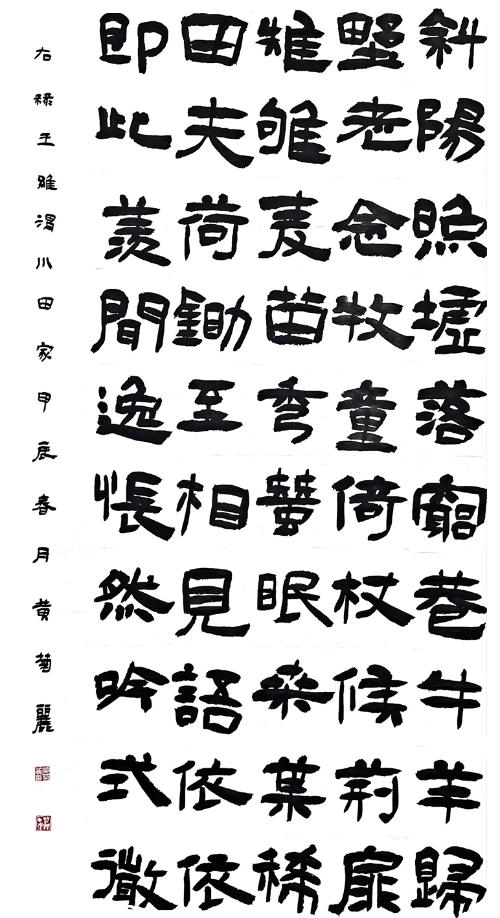 斜陽照墟落窮巷牛羊歸
墅老念牧童倚杖候荊扉
雉雊麦苗秀蠶眠桑葉稀
田夫荷鋤至相見語依依
即此羨間逸悵然吟式微
右録王維渭川田家甲辰春月黃菊麗